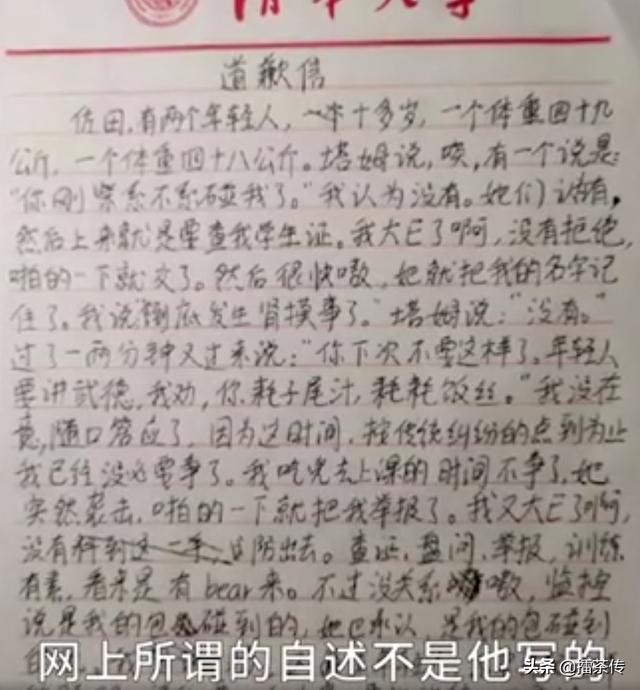 清华大学
道歉信
佐田,有两个年轻人,一个十多岁,一个体重四十九
公斤,一个体重四十八公斤。塔姆说,唉,有一个说是:
“你刚紫系不系碰我了。”我认为没有。她们认为有,
然后上来就是要查我学生证。我大E了啊,没有拒绝,
啪的一下就交了。然后很快嗷,她就把我的名字记
住了。我说“倒底发生肾摸事了。”塔姆说:“没有。”
过了一两分钟又过来说:“你下次不要这样了。年轻人
要讲武德,我劝,你耗子尾汁,耗耗饭丝。”我没在
意,随口答应了,因为这时间,按传统纠纷的点到为止
我已经没必要争了。我吃完去上课的时间不争了,她
突然袭击,啪的一下就把我举报了。我又大E了啊,
没有料到这一手,没防出去。查证,盘问,举报,训练
有素,看来是有bear来。不过没关系嗷,监控
说是我的包碰到的,她也承认,是我的包碰到
网上所谓的自述不是他写的
头条 @擂茶传